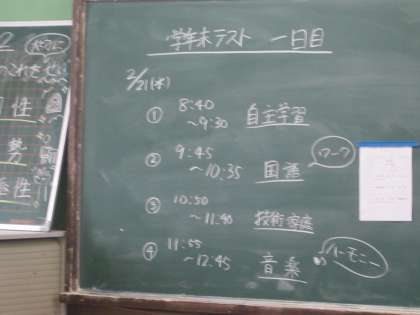 学年末テスト 一日目
2/21(水)
① 8:40
~9:30 自主学習
② 9:45
~10:35 国語 ワーク
③ 10:50
~11:40 技術家庭
④ 11:55
~12:45 音楽 ハーモニー
性
勢
性